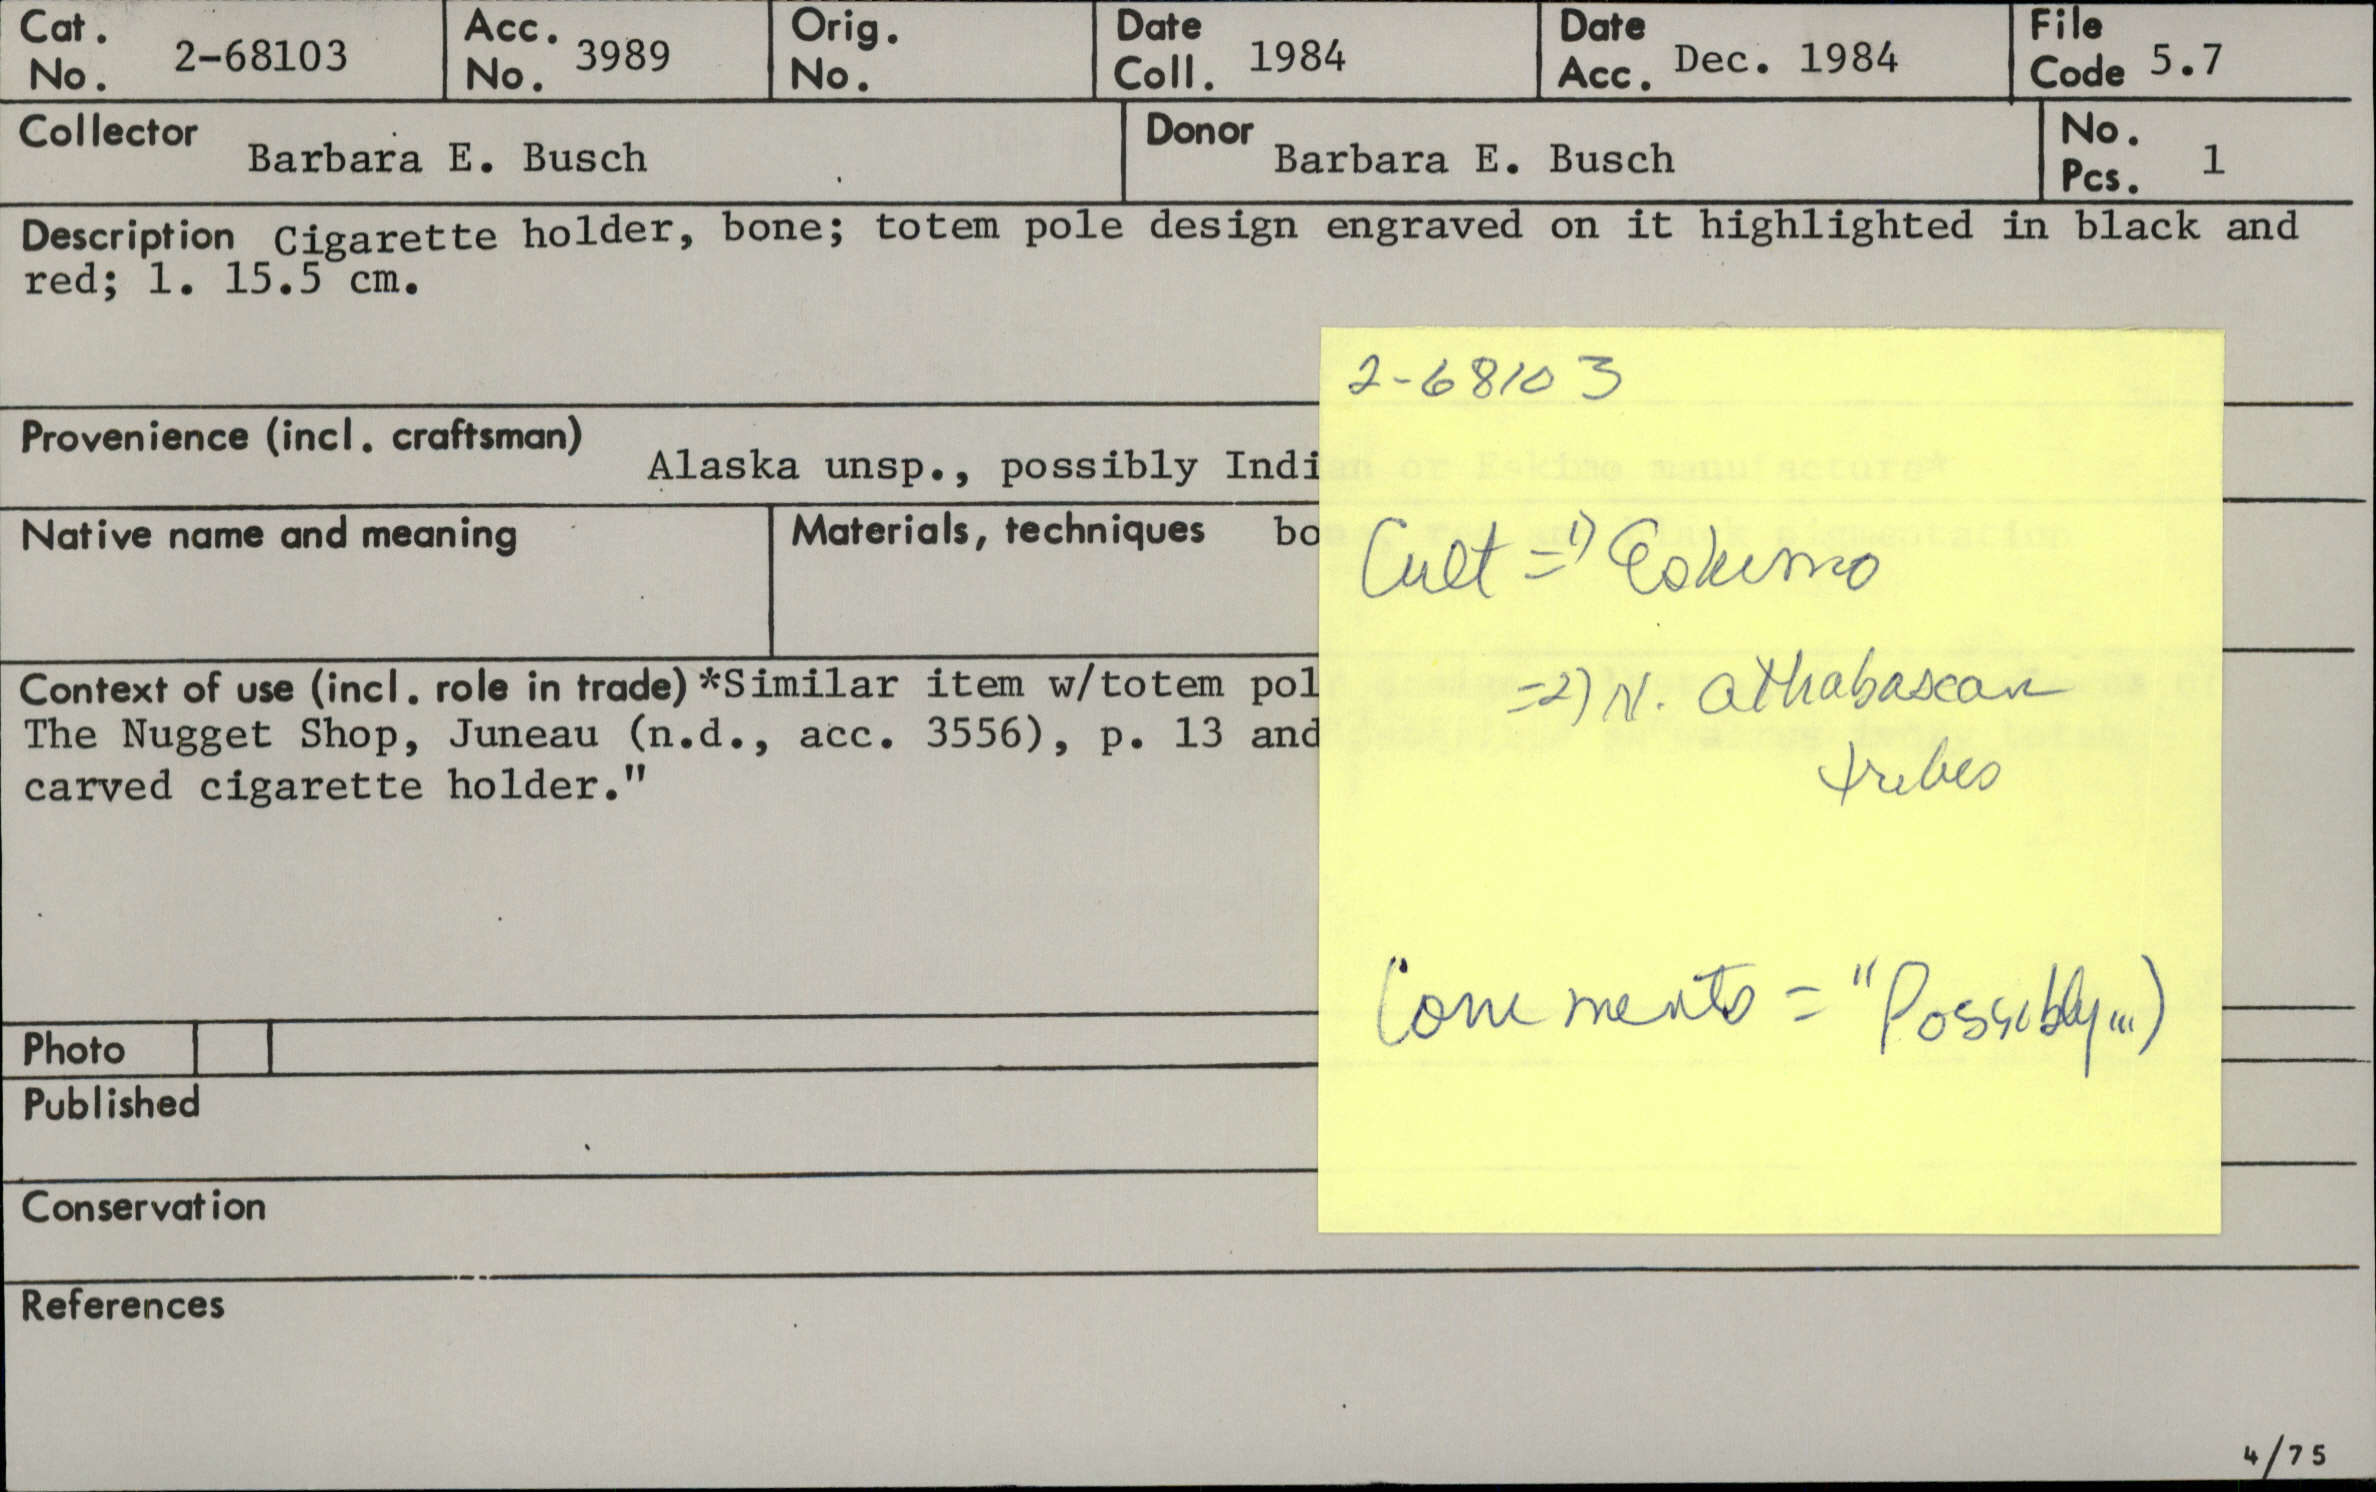 Cat. No. 2-68103 Acc. No. 3989 Orig. No. Date Coll. 1984 Date Acc. Dec. 1984 File Code 5.7
Collector Barbara E. Busch Donor Barbara E. Busch No. Pcs. 1
Description Cigarette holder, bone; totem pole design engraved on it highlighted in black and
red; l. 15.5 cm.
Provenience (incl. craftsman)
Alaska unsp., possibly Indian or Eskimo manufacture*
Native name and meaning Materials, techniques bone, red and black pigmentation
Context of use (incl. role in trade) *Similar item w/totem pole design
The Nugget Shop, Juneau (n.d., acc. 3556), p. 13 and walrus ivory totem
carved cigarette holder."
Photo
Published
Conservation
References
4/75
2-68103
Cult = 1) Eskimo
= 2) N. Athabascan
tribes
Comments = "Possibly...)